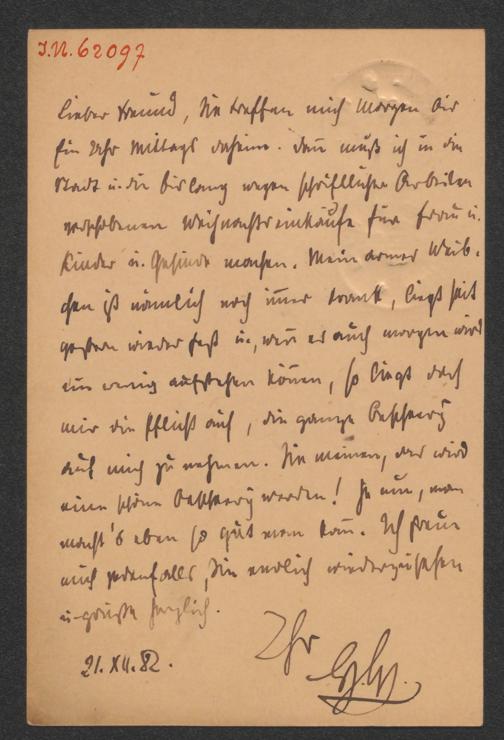 J.N. 62097
Lieber Freund, Sie treffen mich morgen bis
Ein Uhr Mittags daheim. Dann muß ich in die
Stadt u. die bislang wegen schriftlicher Arbeiten
verschobenen Weihnachtseinkäufe für Frau u.
Kinder u. Gesinde machen. Mein armes Weib-
chen ist nämlich noch im̄er krank, liegt seit
gestern wieder fest u., wen̄ es auch morgen wird
ein wenig aufstehen kön̄en, so liegt doch
mir die Pflicht auf, die ganze
auf mich zu nehmen. Sie meinen, das wird
eine schöne werden! Je nun, man
macht's eben so gut man kan̄. Ich freue
mich jedenfalls, Sie endlich wiederzusehen
u. grüße herzlich.
Ihr
21. XII. 82.